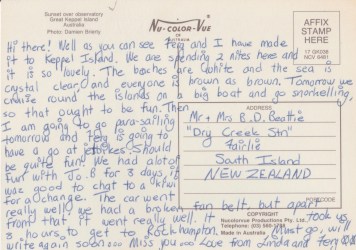 Sunset over observatory
Great Keppel Island
Australia
Photo: Damien Brierly
Nu-COLOR-Vue
IN AUSTRALIA
AFFIX
STAMP
HERE
Hi there! Well as you can see Ferg and I have made
it to Keppel Island. We are spending 2 nites here and
it is so lovely. The beaches are white and the sea is
crystal clear and everyone is brown as brown. Tomorrow we
cruize round the islands on a big boat and go snorkelling,
so that ought to be fun. Then
I am going to go para-sailing
tomorrow and Ferg is going to
have a go at jetbikes. Should
be quite fun. We had alot of
fun with Jo. B for 3 days, it
was good to chat to a kiwi
for a change. The car went
really well, we had a broken fan belt, but apart
from that it went really well. It took us
3 hours to get to Rockhampton. Must go, will
write again soon... Miss you... Love from Linda and Fergus
ADDRESS
Mr + Mrs B.D. Beattie
"Dry Creek Stn"
Fairlie
South Island
NEW ZEALAND
POSTCODE
COPYRIGHT
Nucolorvue Productions Pty. Ltd.
Made in Australia